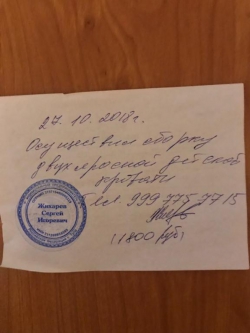 27. 10. 2018г.
Осуществил сборку
двухъярусной детской
кровати
Тел. 999 775 77 15
Жинарев
Сергей
Игоревич
(1800 руб)